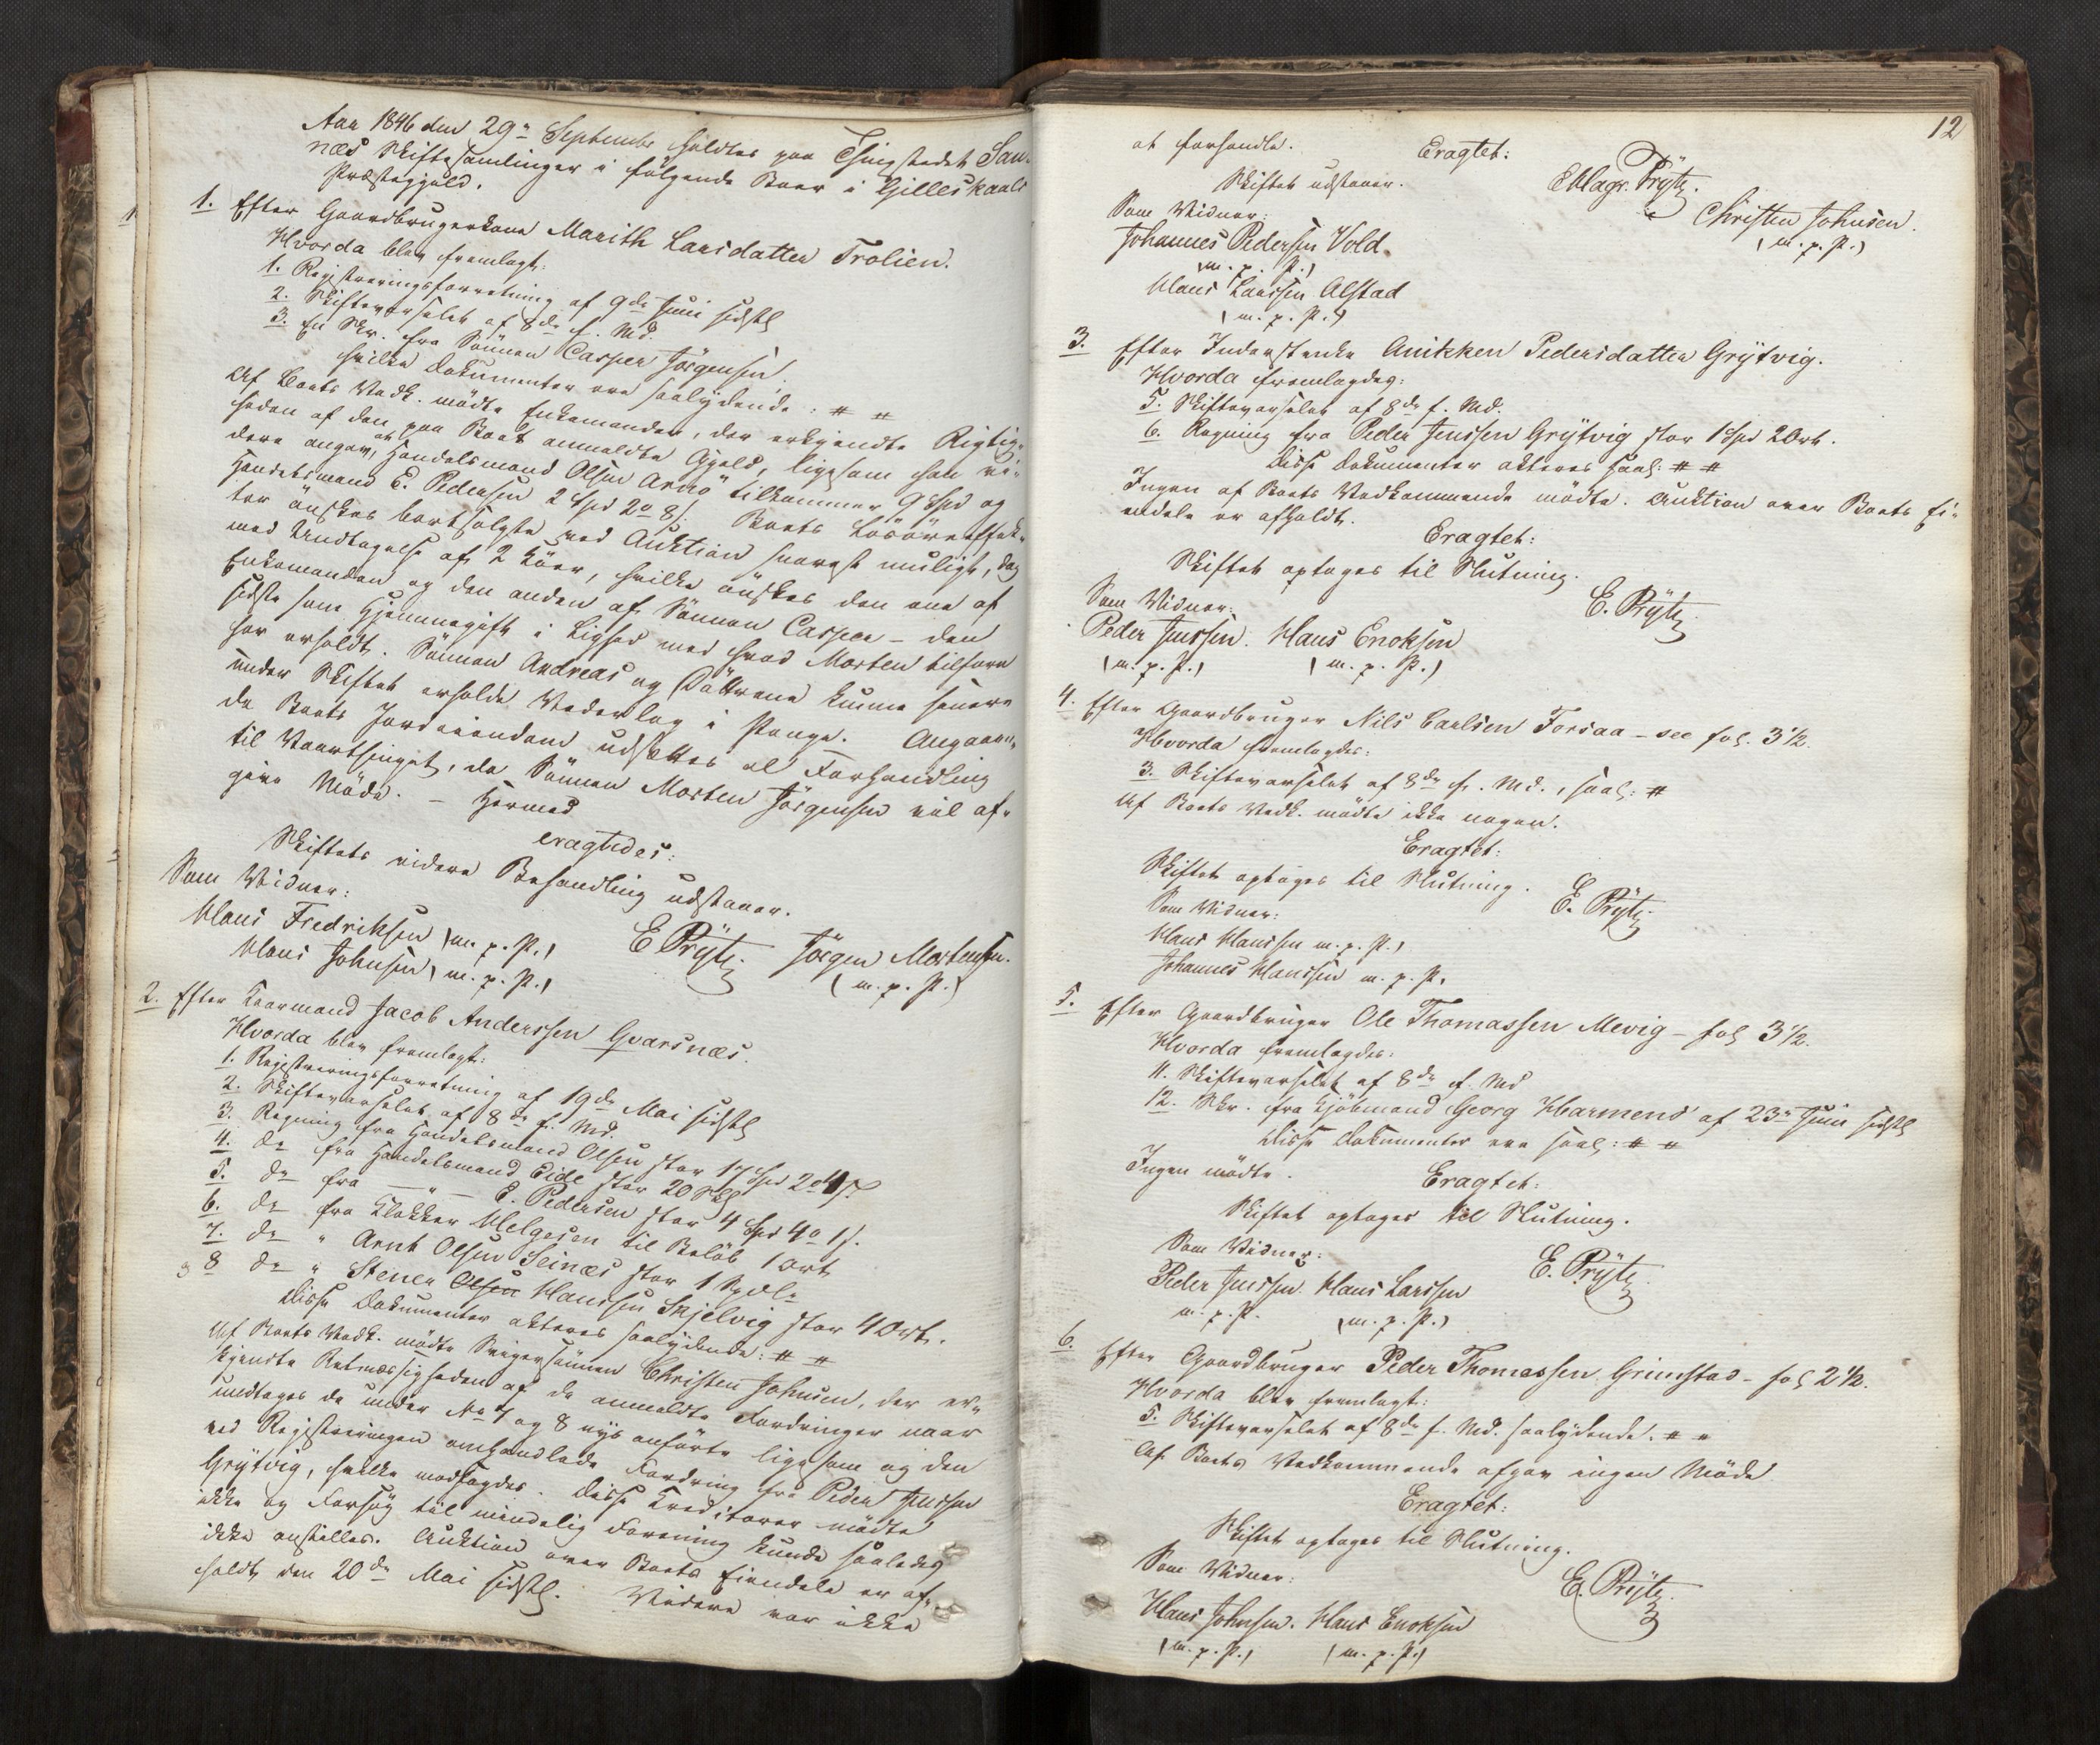 Aar 1846 den 29n September holdtes paa Thingstedet San-
næs Skiftesamlinger i følgende Boer i Gilleskaals
Præstegjeld.
1. Efter Gaardbrugerkone Marith Larsdatter Trolien.
Hvorda blev fremlagt:
1. Registreringsforretning af 9de Juni sidstl
2. Skiftevarselet af 8de f. Md.
3. En Skr. fra Sönnen Casper Jörgensen.
hvilke Dokumenter ere saalydende: # #
Af Boets Vedk. mödte Enkemanden, der erkjendte Rigtig-
heden af den paa Boet anmeldte Gjeld, ligesom han vi-
dere angav, at Handelsmand Olsen Arnö tilkommer 9 Spd og
Handelsmand E. Pedersen 2 Spd 2o 8 s. Boets Lösöreeffek-
ter önskes bortsolgte ved Auktion snarest muligt, dog
med Undtagelse af 2 Köer, hvilke önskes den ene af
Enkemanden og den anden af Sönnen Casper – den
sidste som Hjemmegift i Lighed med hvad Morten tilforn
har erholdt. Sönnen Andreas og Döttrene kunne senere
under Skiftet erholde Vederlag i Penge. Angaaen-
de Boets Jordeiendom udsættes al Forhandling
til Vaarthinget, da Sönnen Morten Jörgensen vil af-
give Möde. – Hermed
eragtedes:
Skiftets videre Behandling udstaaer.
Som Vidner:
Hans Fredriksen (m. p. P.) E Prÿtz. Jörgen Mortensen.
Hans Johnsen (m. p. P.) (m. p. P.)
2. Efter Kaarmand Jacob Anderssen Qvarsnæs.
Hvorda blev fremlagt:
1. Registreringsforretning af 19de Mai sidstl
2. Skiftevarselet af 8de f. Md.
3. Regning fra Handelsmand Olsen stor 17 Spd 2o
4. do fra Handelsmand Eide stor 20 Skl
5. do fra — " — E. Pedersen stor 4 Spd 4o 1 s.
6. do fra Klokker Helgesen til Belöb 1 Ort
7. do " Arnt Olsen Seines stor 1 Spdlr
8 do " Stener Olsen Hanssen Skjelvig stor 4 Ort.
Disse Dokumenter akteres saalydende: # #
Af Boets Vedk. mödte Svigersönnen Christen Johnsen, der er-
kjendte Retmæssigheden af de anmeldte Fordringer naar
undtages de under No 7 og 8 nys anförte ligesom og den
ved Registreringen omhandlede Fordring fra Peder Jenssen
Grÿtvig, hvilke modsagdes. Disse Kreditorer mödte
ikke og Forsög til mindelig Forening kunde saaledes
ikke anstilles. Auktion over Boets Eiendele er af-
holdt den 20de Mai sidstl. Videre var ikke
12
at forhandle. Eragtet:
Skiftet udstaaer. EHagr. Prÿtz.
Som Vidner: Christen Johnsen.
Johannes Pedersen Vold. (m. p. P.)
(m. p. P.)
Hans Larssen Alstad
(m. p. P.)
3. Efter Inderstenke Anikken Pedersdatter Grÿtvig.
Hvorda fremlagdes:
5. Skiftevarselet af 8de f. Md.
6. Regning fra Peder Jenssen Grÿtvig stor 1 Spd 2 Ort.
Disse Dokumenter akteres saal: # #
Ingen af Boets Vedkommende mödte. Auktion over Boets Ei-
endele er afholdt.
Eragtet:
Skiftet optages til Slutning.
Som Vidner: E. Prÿtz
Peder Jenssen. Hans Enoksen
(m. p. P.) (m. p. P.)
4. Efter Gaardbruger Nils Carlsen Forsaa – see fol. 3 1/2.
Hvorda fremlagdes:
3. Skiftevarselet af 8de f. Md., saal: #
Af Boets Vedk. mödte ikke nogen.
Eragtet:
Skiftet optages til Slutning.
Som Vidner: E. Prÿtz
Hans Hanssen m. p. P.
Johannes Hanssen m. p. P.
5. Efter Gaardbruger Ole Thomassen Mevig – fol 3 1/2.
Hvorda fremlagdes:
11. Skiftevarselet af 8de f. Md
12. Skr. fra Kjöbmand Georg Harmens af 23n Juni sidstl
Disse Dokumenter ere saal: # #
Ingen mödte. Eragtet:
Skiftet optages til Slutning.
Som Vidner: E. Prÿtz
Peder Jenssen. Hans Larssen
m. p. P. (m. p. P.)
6. Efter Gaardbruger Peder Thomassen Grimstad – fol 2 1/2.
Hvorda blev fremlagt:
5. Skiftevarselet af 8de f. Md. saalydende: # #
Af Boets Vedkommende afgav ingen Möde.
Eragtet:
Skiftet optages til Slutning.
Som Vidner: E. Prÿtz
Hans Johnsen. Hans Enoksen
(m. p. P.) (m. p. P.)